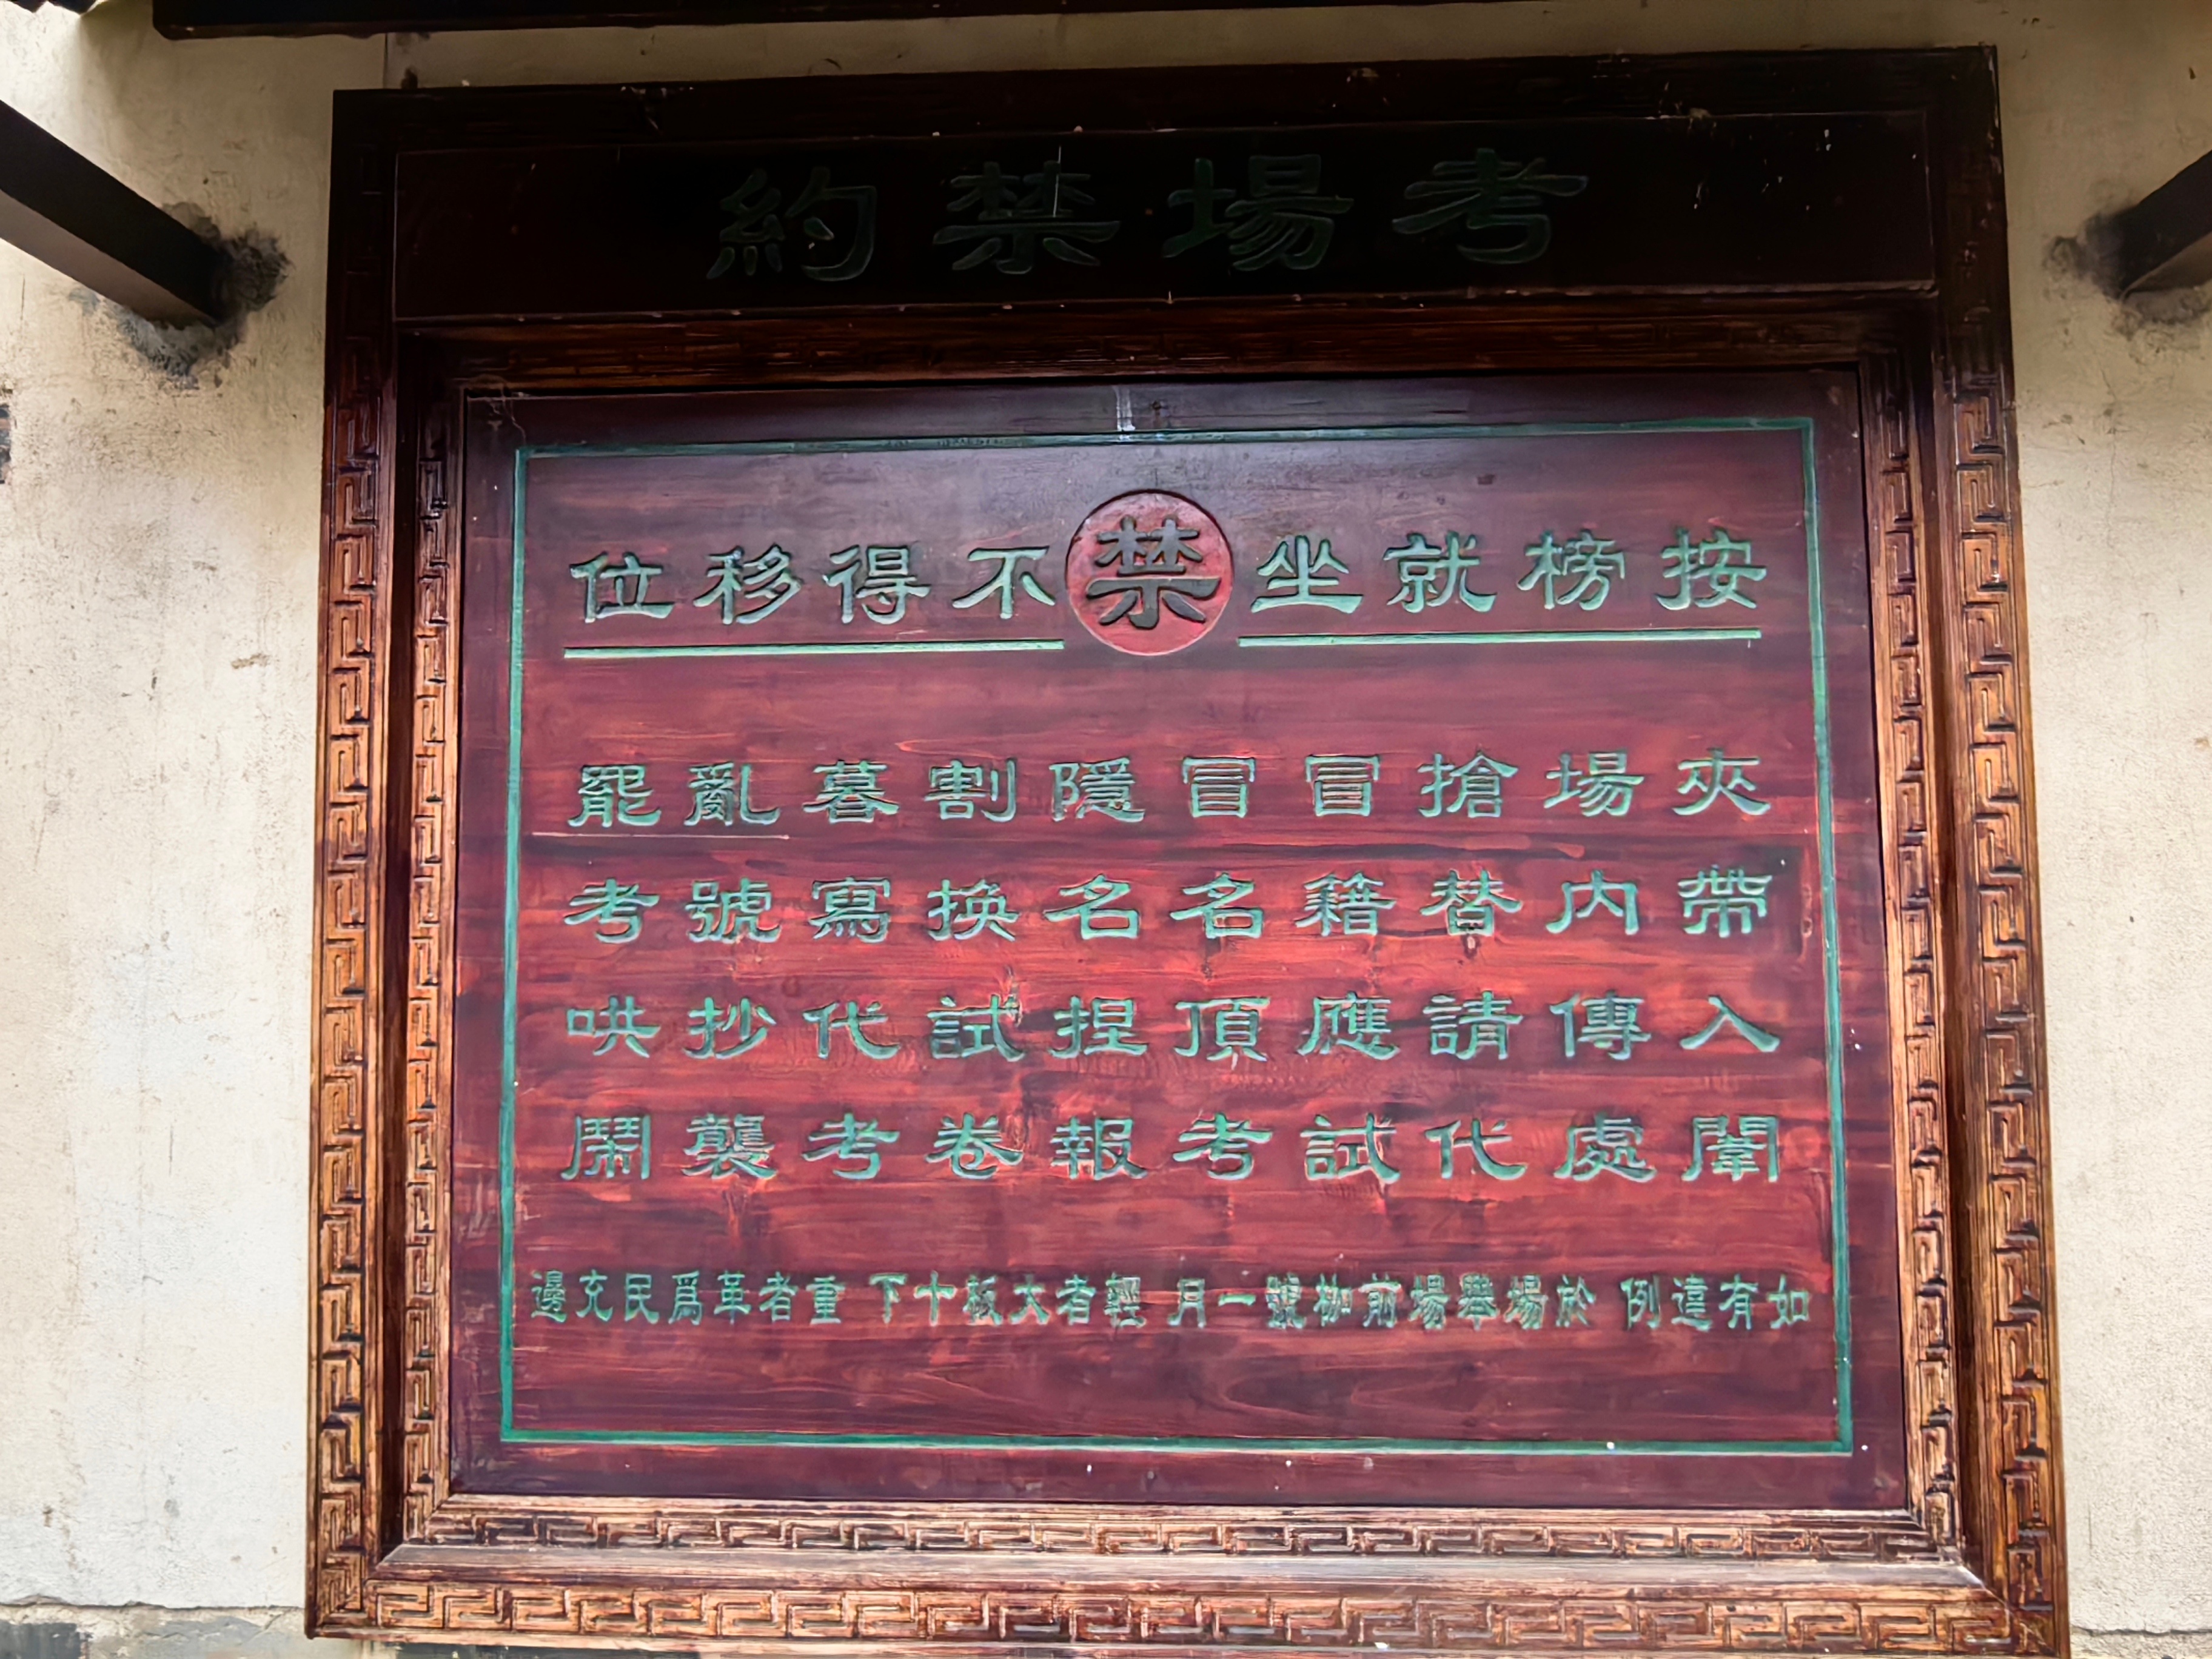 考場禁約
按榜就坐禁不得移位
夾帶入闈
場内傳處
搶替請代
冒籍應試
冒名頂考
隱名捏報
割換試卷
暮寫代考
亂號抄襲
罷考哄鬧
如有違例 於場舉場前枷號一月 輕者大板十下 重者革爲民充邊